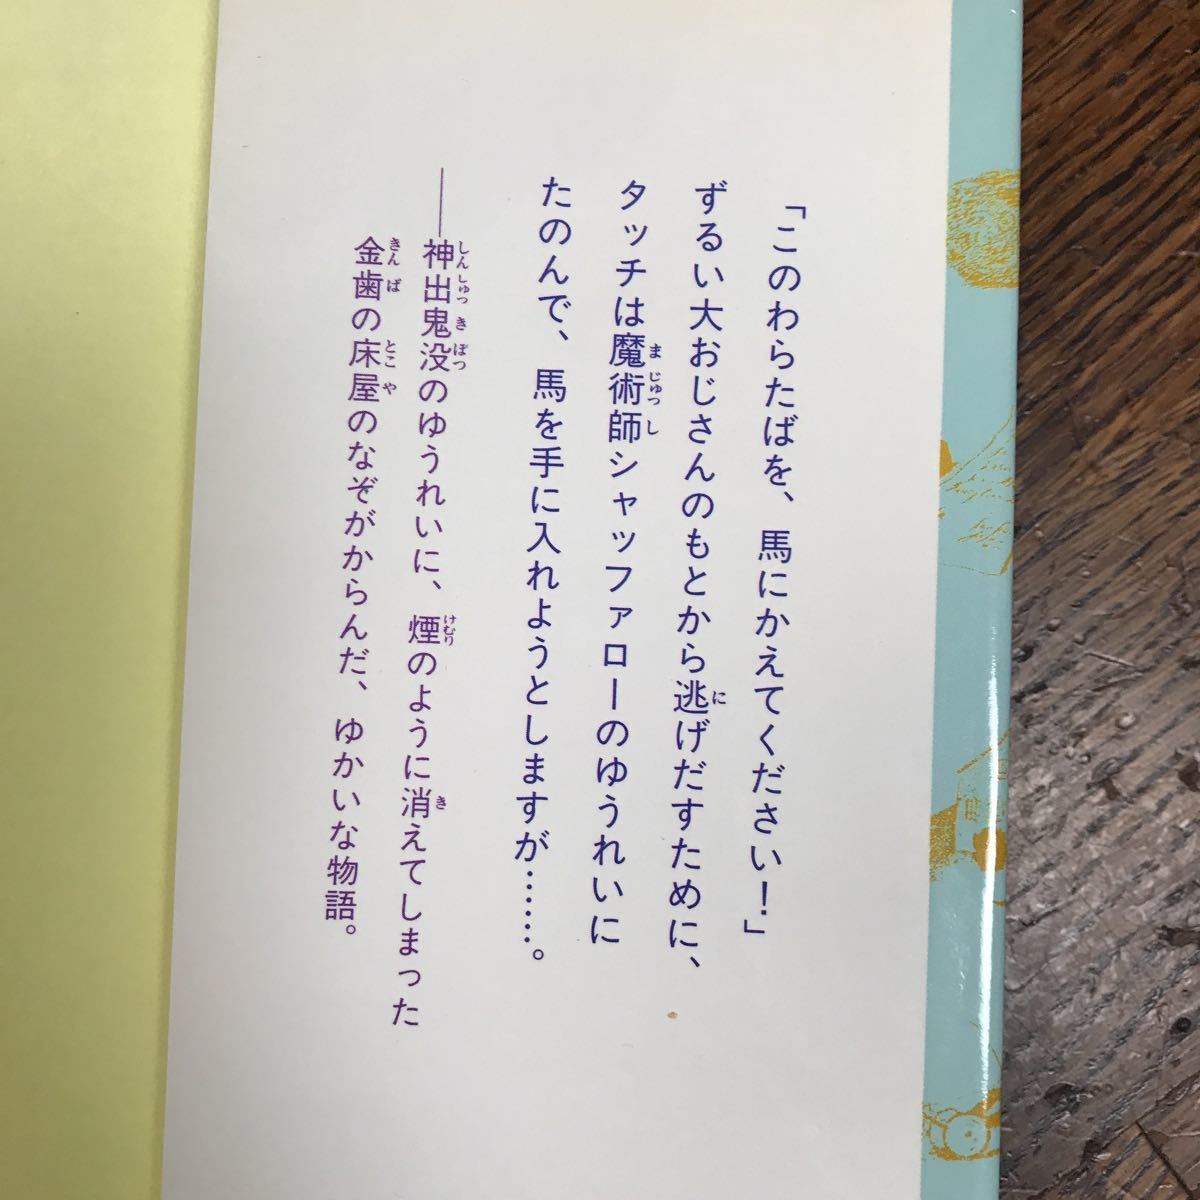 「このわらたばを、馬にかえてください！」
ずるい大おじさんのもとから逃げだすために、
タッチは魔術師シャッファローのゆうれいに
たのんで、馬を手に入れようとしますが……。
――神出鬼没のゆうれいに、煙のように消えてしまった
金歯の床屋のなぞがからんだ、ゆかいな物語。